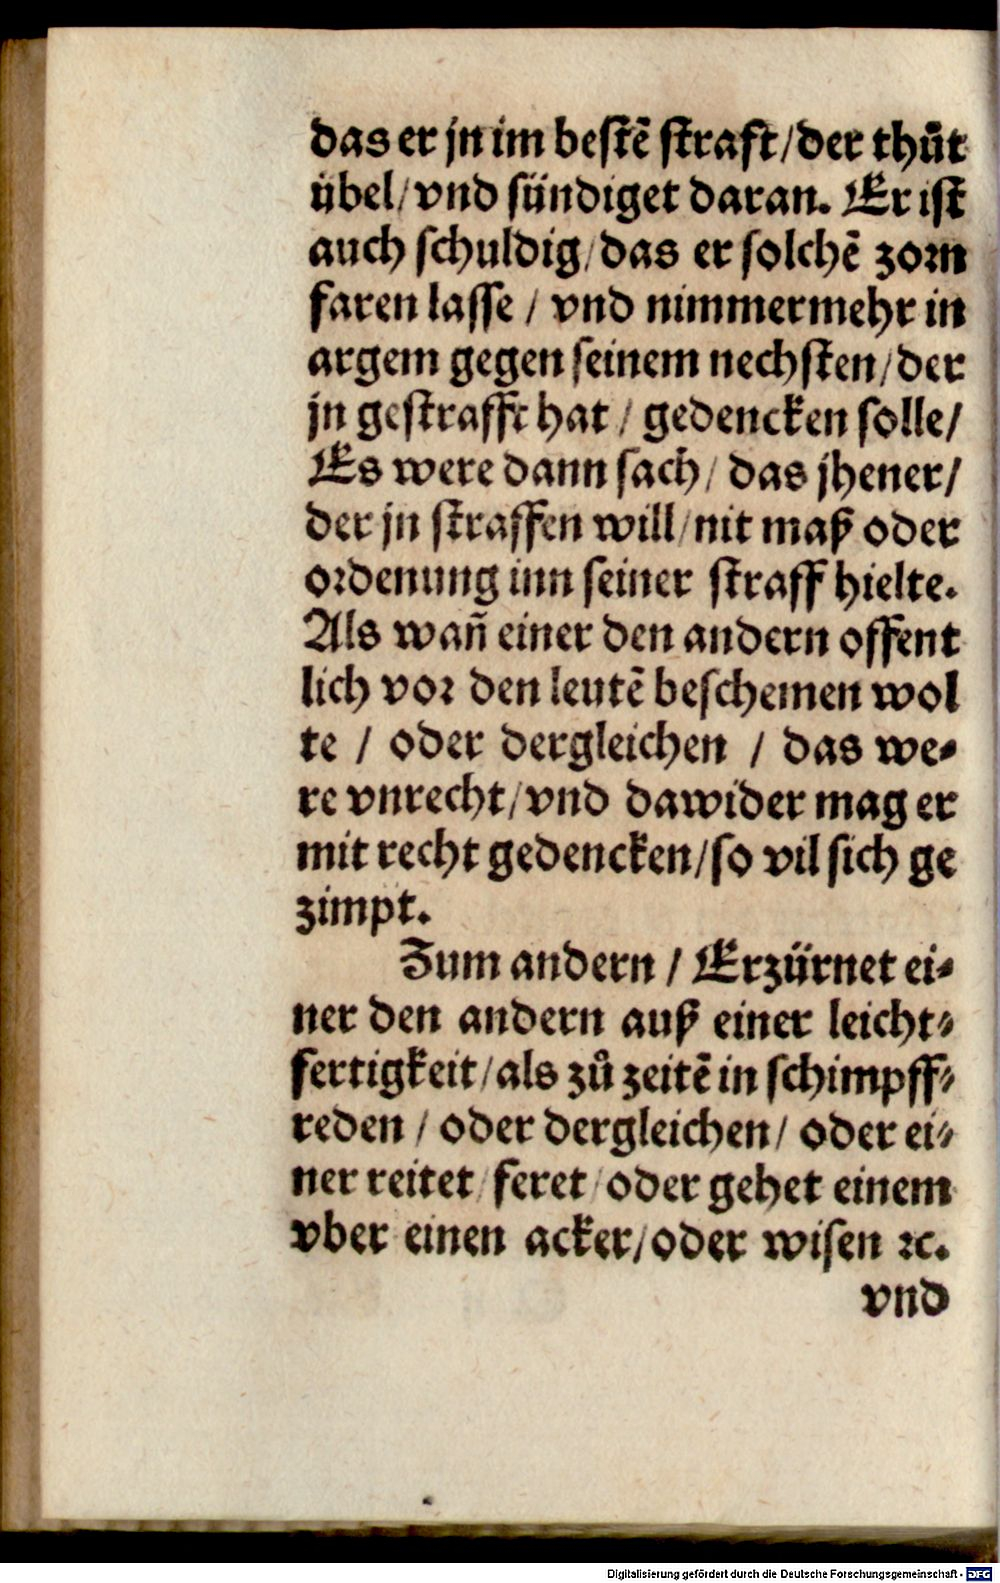 das er jn im bestē straft/der thůt
übel/vnd sündiget daran. Er ist
auch schuldig/das er solchē zorn
faren lasse / vnd nimmermehr in
argem gegen seinem nechsten/der
jn gestrafft hat / gedencken solle/
Es were dann sach/ das jhener/
der jn straffen will/nit maß oder
ordenung inn seiner straff hielte.
Als wañ einer den andern offent
lich vor den leutē beschemen wol
te / oder dergleichen / das we⸗
re vnrecht/vnd dawider mag er
mit recht gedencken/so vil sich ge
zimpt.
Zum andern / Erzürnet ei⸗
ner den andern auß einer leicht⸗
fertigkeit/als zů zeitē in schimpff⸗
reden / oder dergleichen/ oder ei⸗
ner reitet/feret/oder gehet einem
vber einen acker/oder wisen ꝛc.
vnd
Digitalisierung gefördert durch die Deutsche Forschungsgemeinschaft - DFG